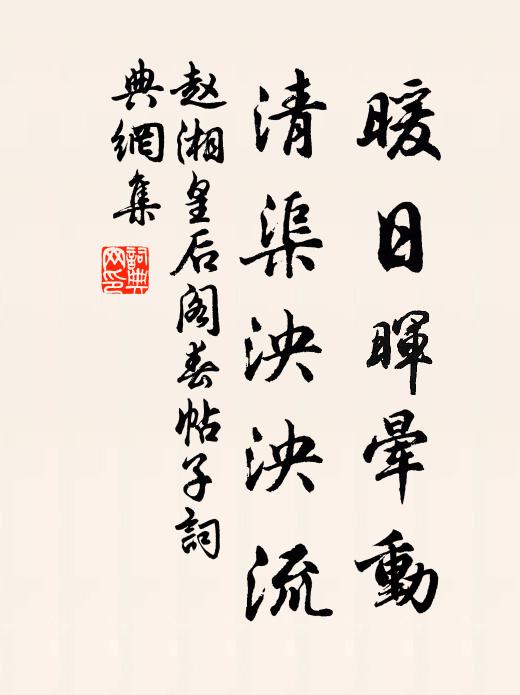 暖日暉暈動
清渠泱泱流
赵湘皇后阁春帖子詞
典網集
詞典網印